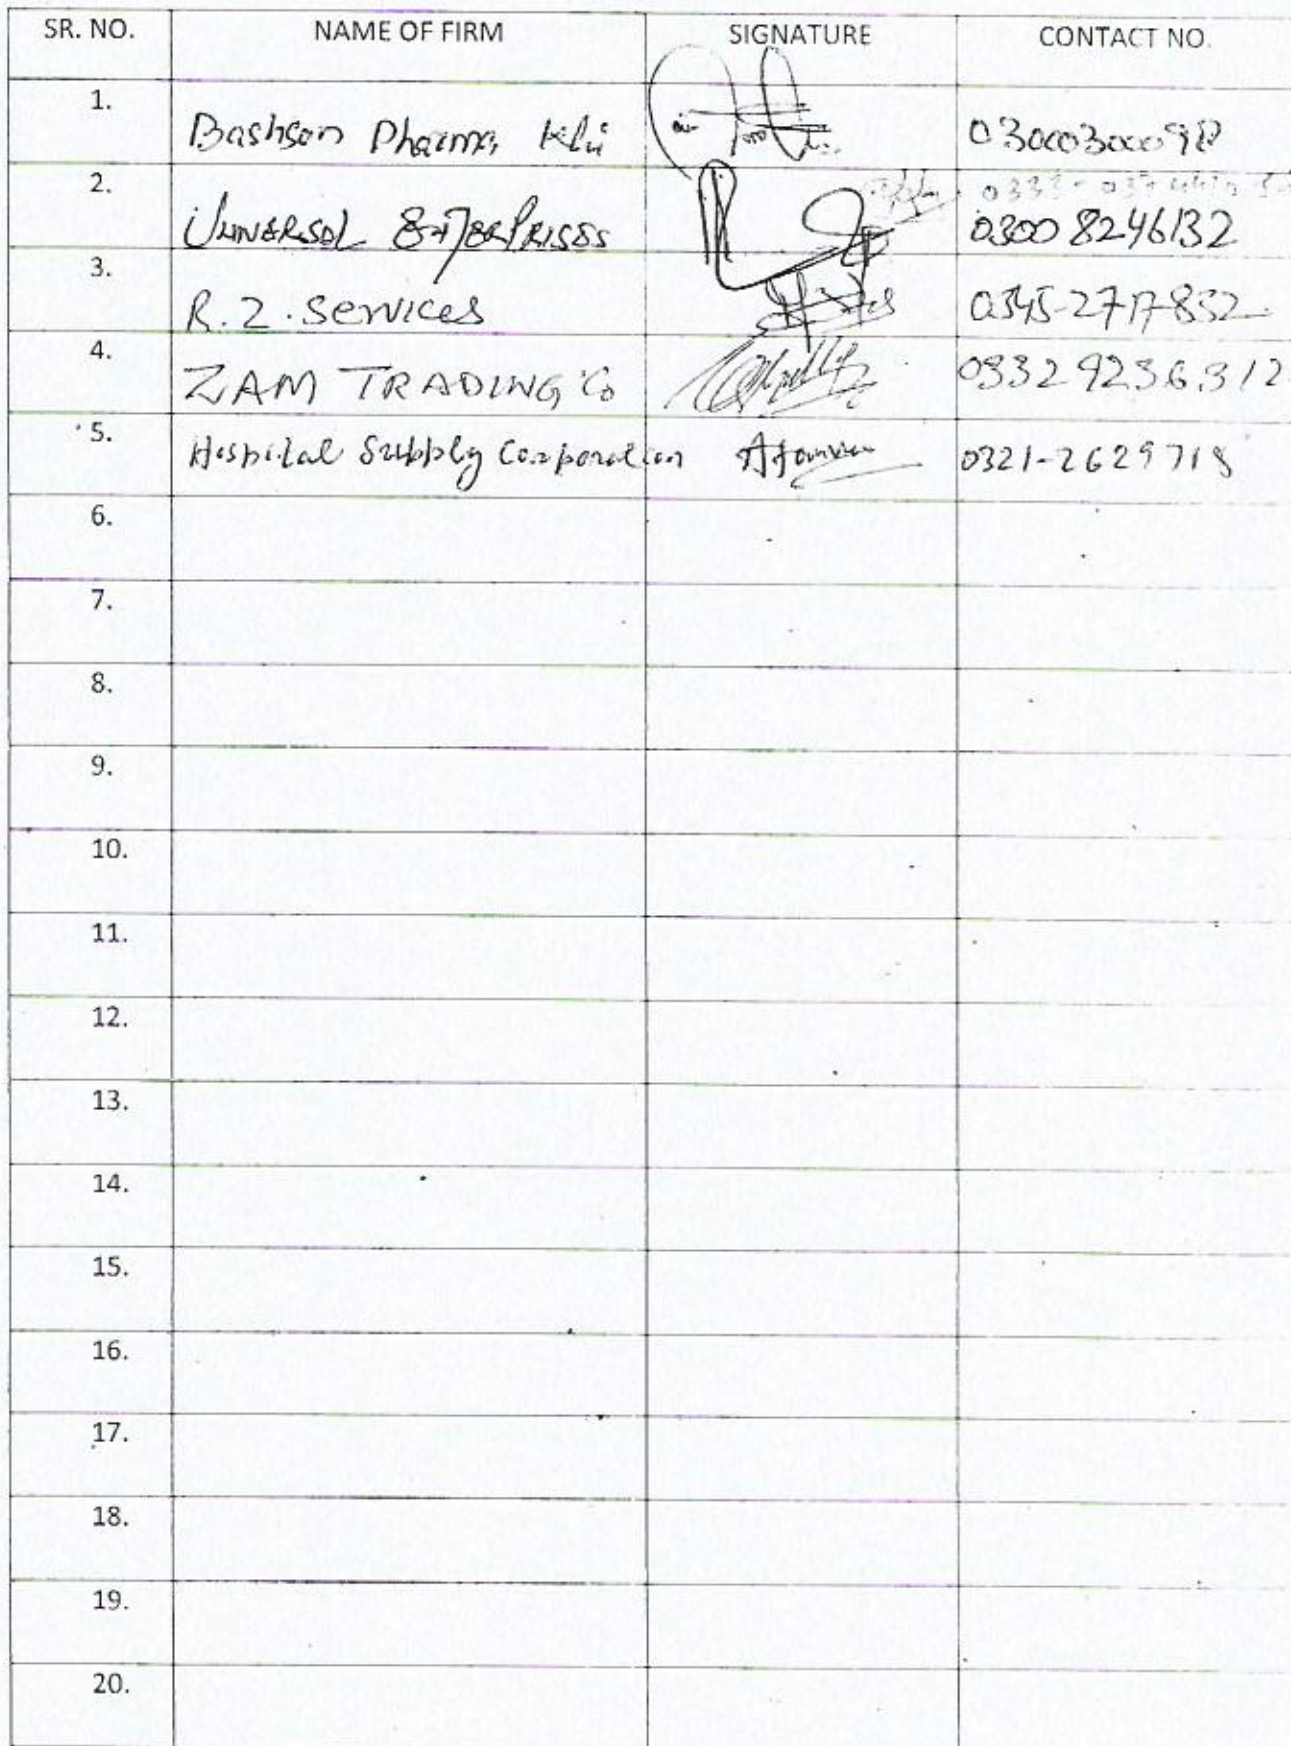 SR. NO. NAME OF FIRM SIGNATURE CONTACT NO.
1. Bashson Pharma Khi
2. UNIVERSAL ENTERPRISES 0300 8246132
3. R.Z. Services 0345-2717832
4. ZAM TRADING Co 03329236312
5. Hospital Supply Corporation 0321-2629718
6.
7.
8.
9.
10.
11.
12.
13.
14.
15.
16.
17.
18.
19.
20.